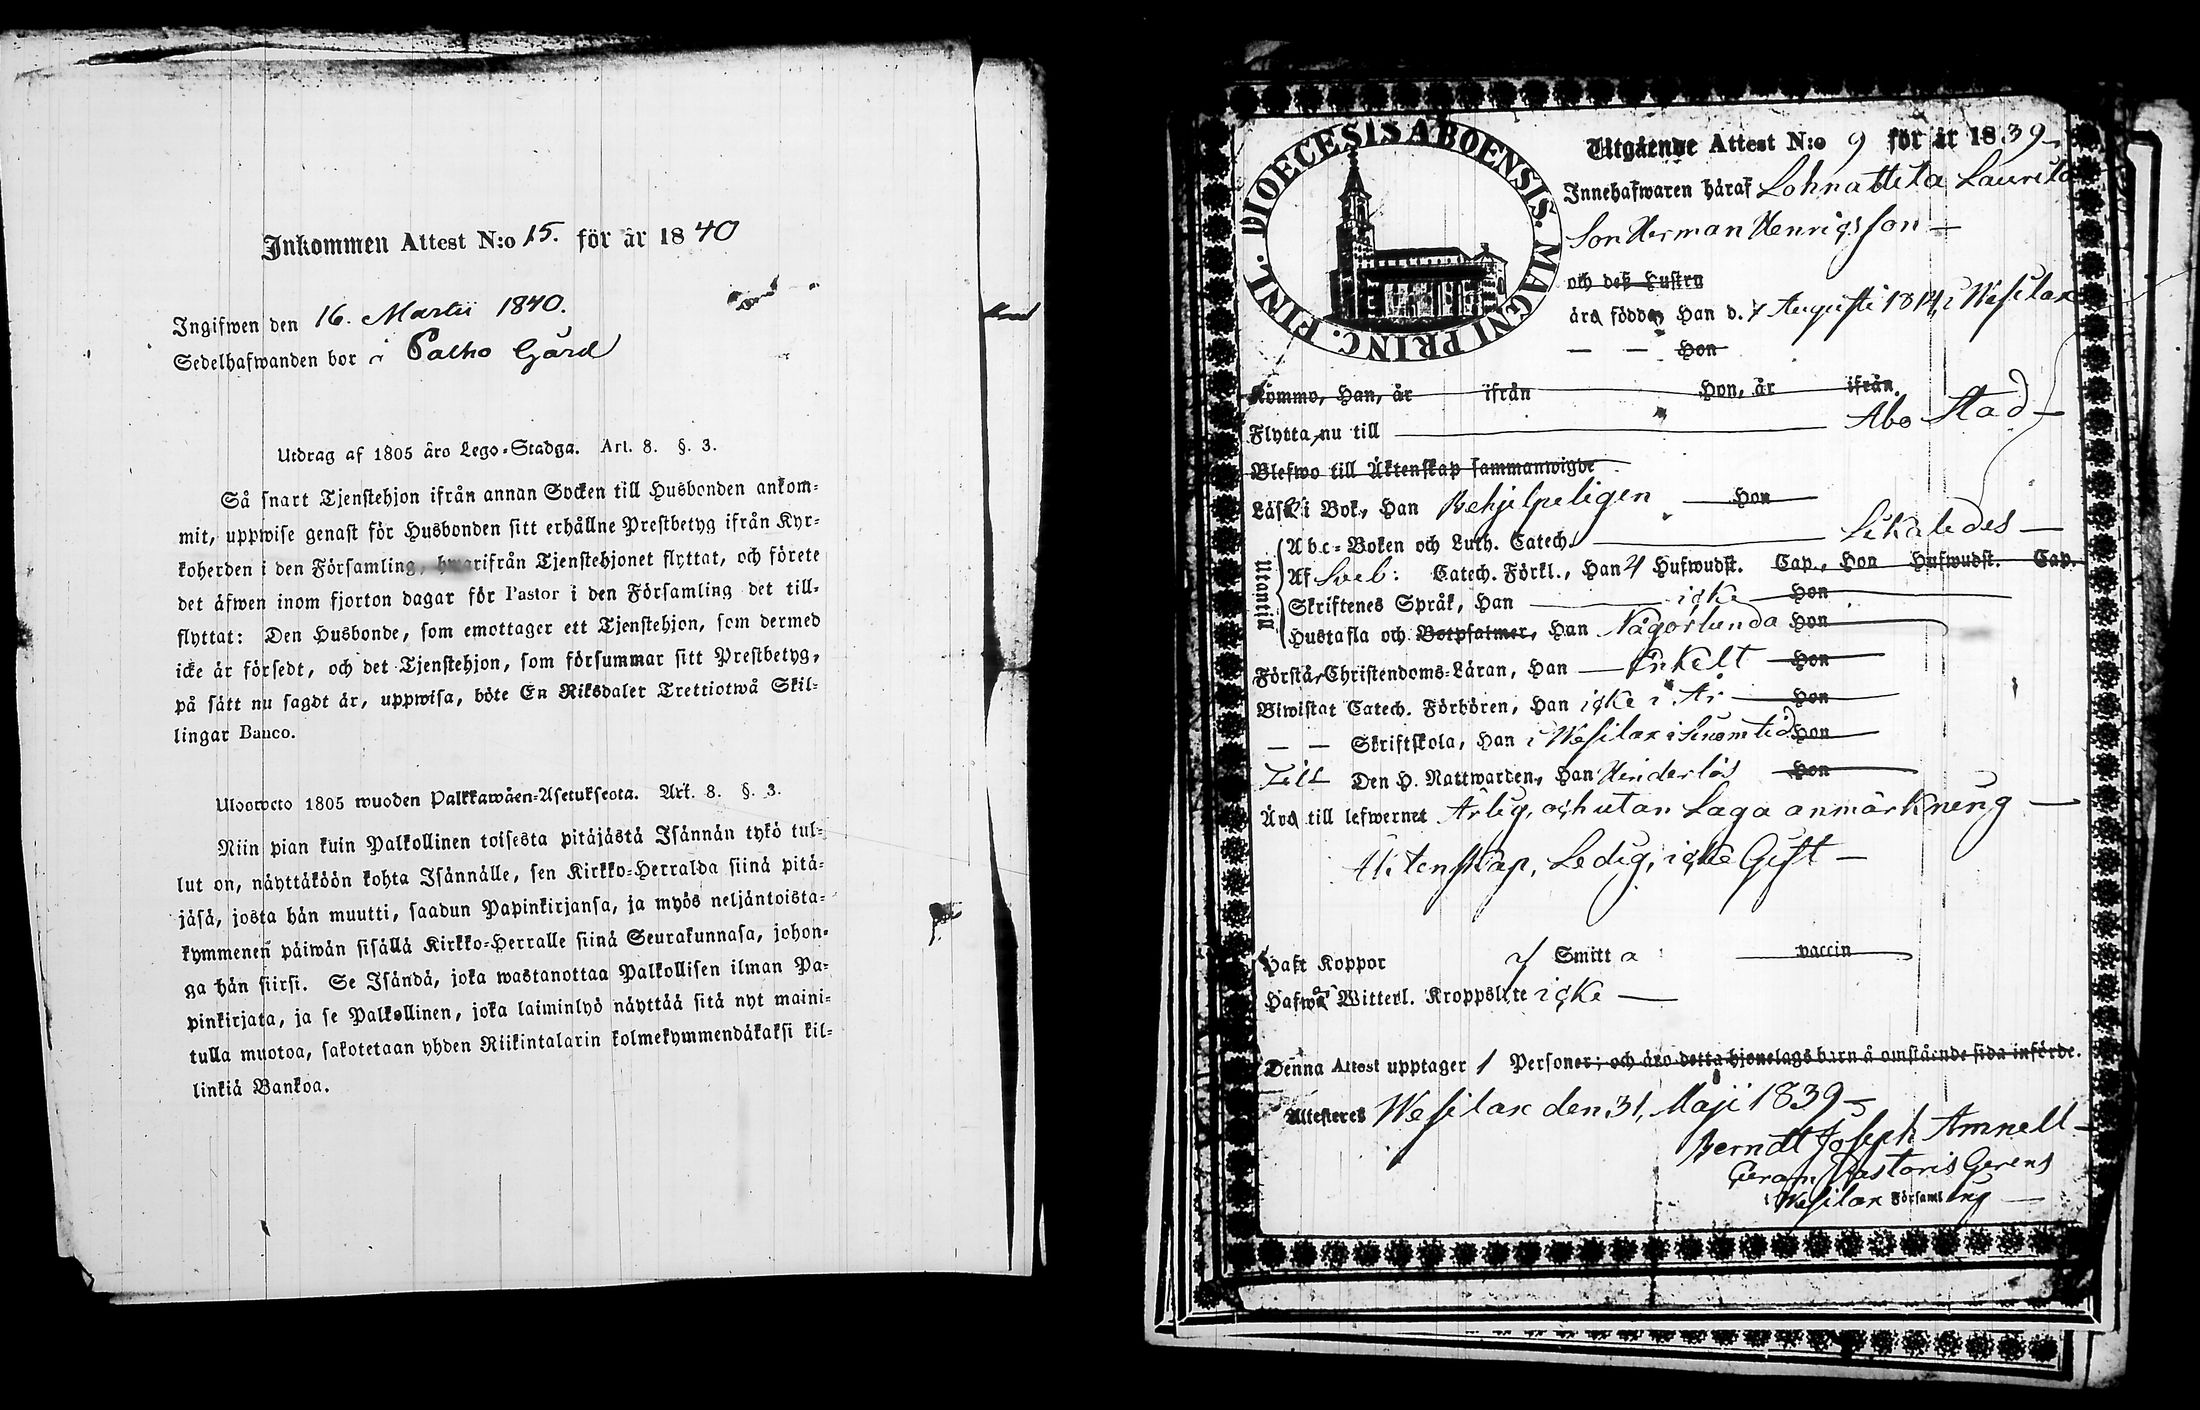 Inkommen Attest N:o 15. för år 1840
Ingifwen den 16. Martii 1840.
Sedelhafwanden bor i Palho Gård
Utdrag af 1805 års Lego-Stadga. Art. 8. §. 3.
Så snart Tjenstehjon ifrån annan Socken till Husbonden ankom-
mit, uppwise genast för Husbonden sitt erhållne Prestbetyg ifrån Kyr-
koherden i den Församling, hwarifrån Tjenstehjonet flyttat, och förete
det äfwen inom fjorton dagar för Pastor i den Församling det till-
flyttat: Den Husbonde, som emottager ett Tjenstehjon, som dermed
icke är försedt, och det Tjenstehjon, som försummar sitt Prestbetyg,
på sätt nu sagdt är, uppwisa, böte En Riksdaler Trettiotwå Skil-
lingar Banco.
Uloosweto 1805 wuoden Palkkawäen-Asetuksesta. Art. 8. §. 3.
Niin pian kuin Palkollinen toisesta pitäjästä Isännän tykö tul-
lut on, näyttäköön kohta Isännälle, sen Kirkko-Herralda siinä pitä-
jäsä, josta hän muutti, saadun Papinkirjansa, ja myös neljäntoista-
kymmenen päiwän sisällä Kirkko-Herralle siinä Seurakunnasa, johon-
ga hän siirsi. Se Isändä, joka wastanottaa Palkollisen ilman Pa-
pinkirjata, ja se Palkollinen, joka laiminlyö näyttää sitä nyt maini-
tulla muotoa, sakotetaan yhden Riikintalarin kolmekymmendäkaksi kil-
linkiä Bankoa.
DIOECESIS ABOENSIS. MAGNI PRINC. FINL.
Utgående Attest N:o 9 för år 1839
Innehafwaren häraf Lohnattila Laurila
Son Herman Henrigsson
och deß Hustru
äro födde, Han d. 7 Augusti 1814, i Wesilax
— — Hon
Kommo, Han, år ifrån Hon, år ifrån
Flytta nu till Åbo Stad
Blefwo till Äktenskap sammanwigde
Läsa i Bok, Han Behjelpeligen Hon
Utantill
Abc-Boken och Luth. Catech. Likaledes
Af Sveb: Catech. Förkl., Han 4 Hufwudst. Cap., Hon Hufwudst. Cap.
Skriftenes Språk, Han icke Hon
Hustafla och Botpsalmer, Han Någorlunda Hon
Förstå Christendoms-Läran, Han Enkelt Hon
Biwistat Catech. Förhören, Han icke i År Hon
— — Skriftskola, Han i Wesilax i sinom tid Hon
Till Den H. Nattwarden, Han Hinderlös Hon
Äro till lefwernet Ärlig, och utan Laga anmärkning
Äktenskap, Ledig, icke Gift
Haft Koppor af Smitta vaccin
Hafwa Witterl. Kroppslyte icke
Denna Attest upptager 1 Personer; och äro detta hjonelags barn å omstående sida införde.
Attesteres Wesilax den 31, Maji 1839
Berndt Joseph Amnell
Curam Pastoris Gerens
i Wesilax Församling